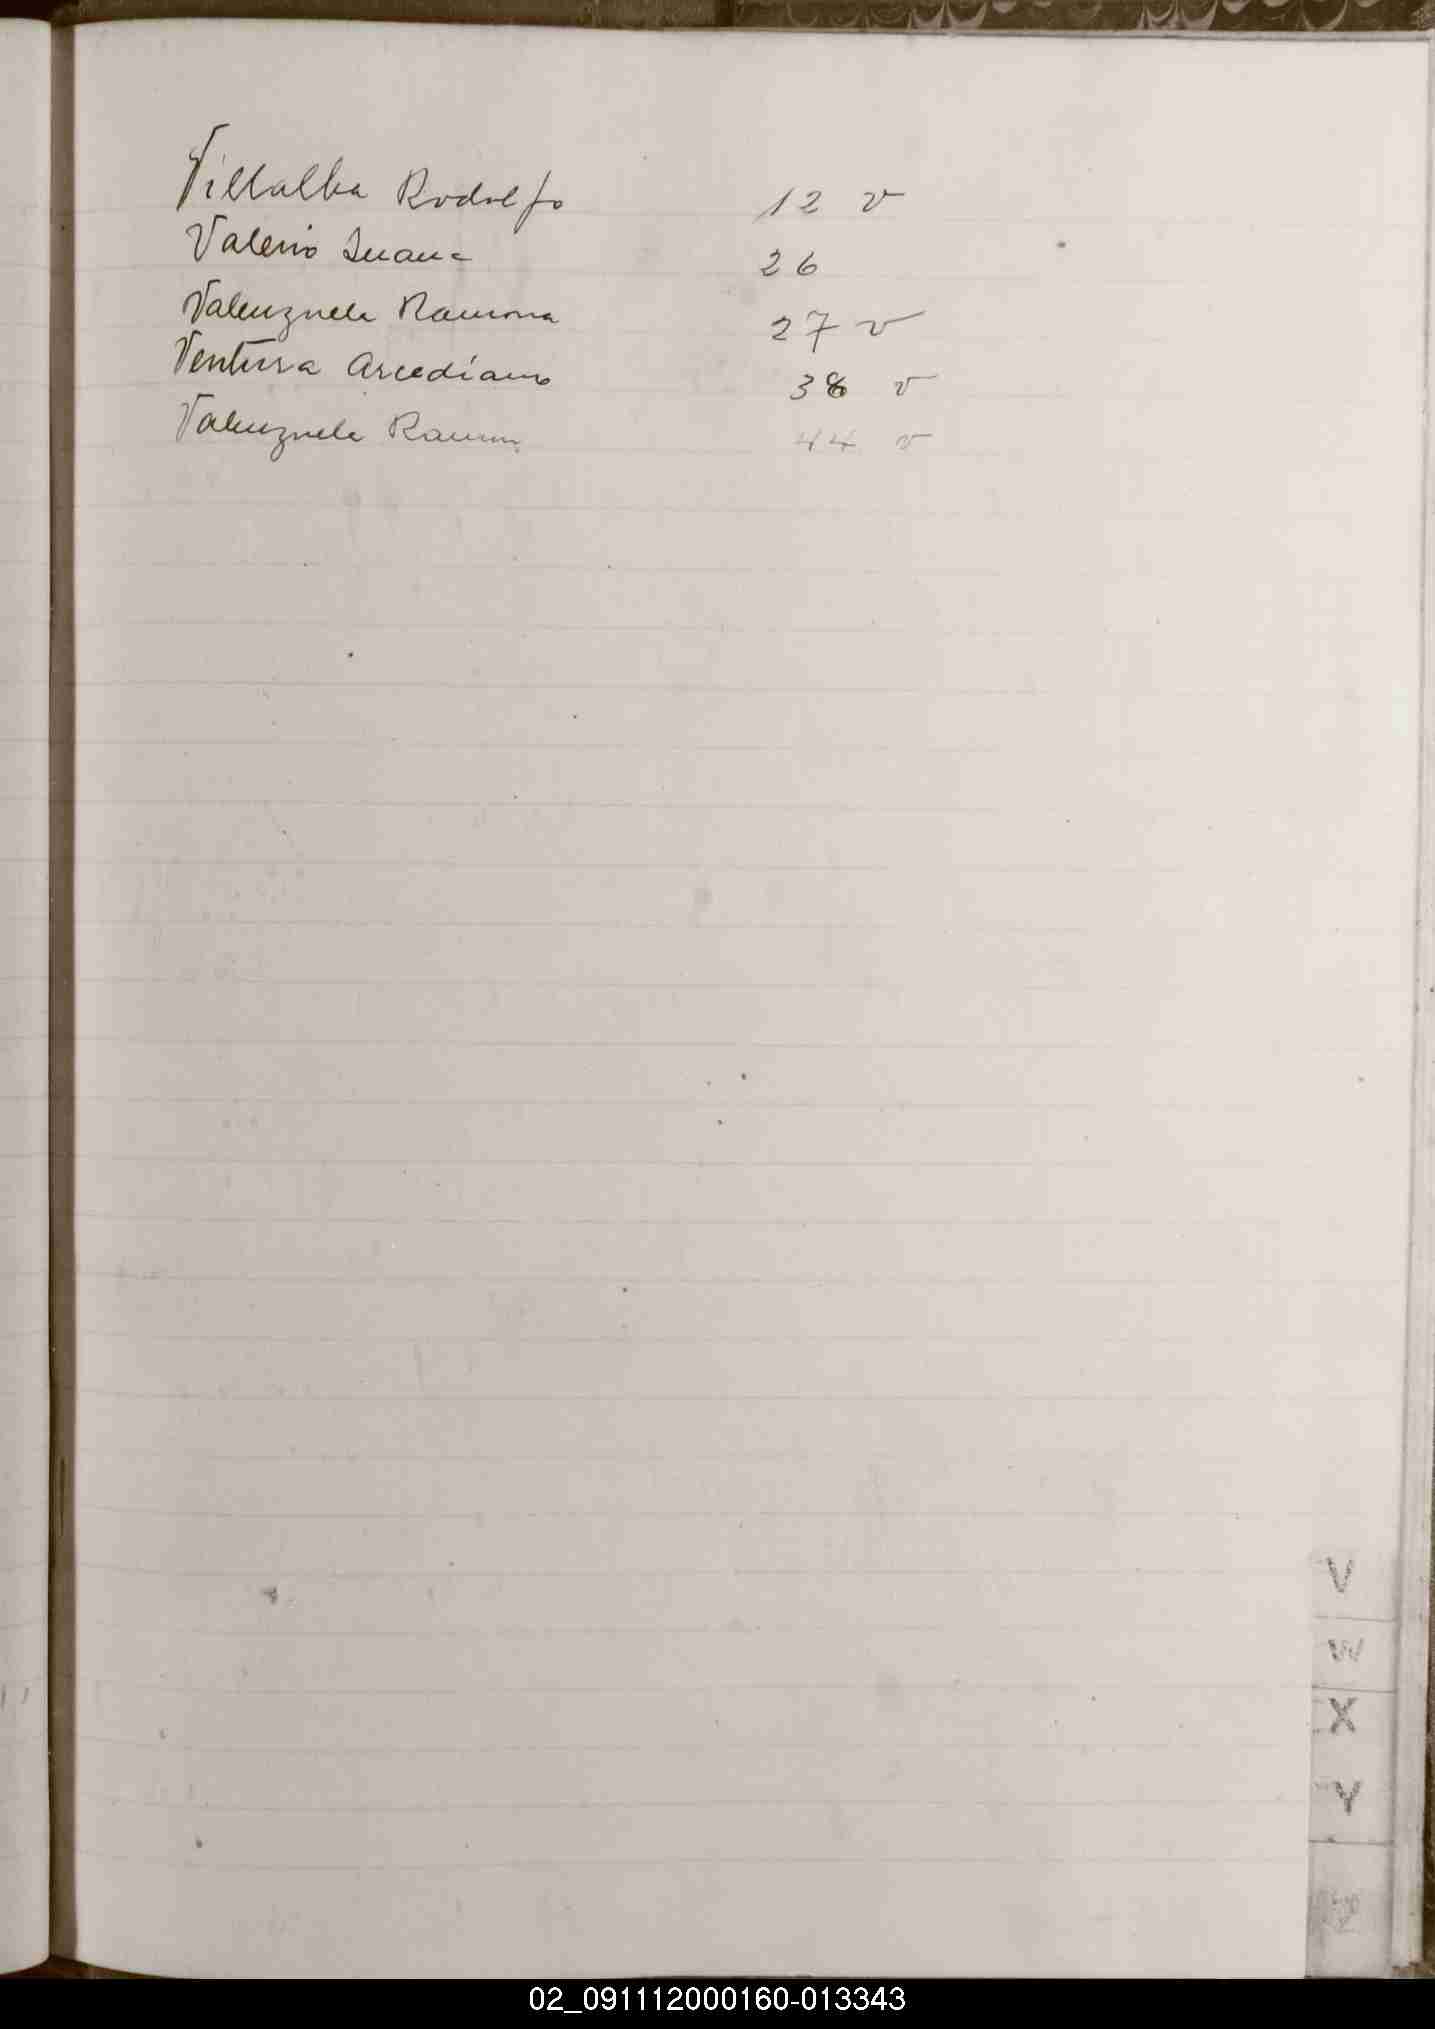 Villalba Rodolfo 12 v
Valerio Juana 26
Valenzuela Ramona 27 v
Ventura Arcediano 38 v
Valenzuela Ramon 44 v
V
W
X
Y
Z
02_091112000160-013343